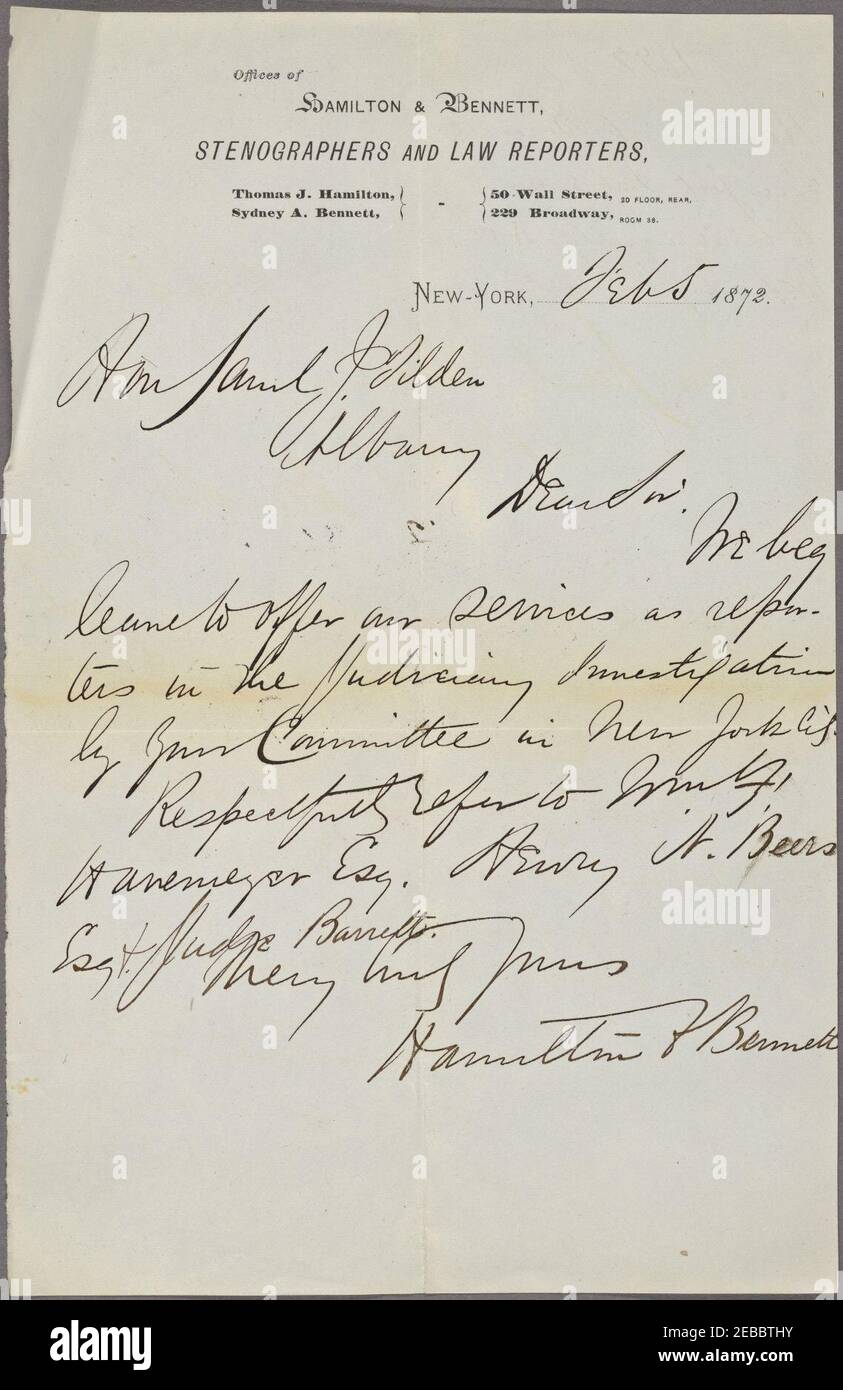 Offices of
HAMILTON & BENNETT,
STENOGRAPHERS AND LAW REPORTERS,
Thomas J. Hamilton, } - { 50 Wall Street, 2D FLOOR, REAR,
Sydney A. Bennett, 229 Broadway, ROOM 38.
NEW-YORK, Feb 5 1872.
Hon Saml J. Tilden
Albany
Dear Sir.
We beg
leave to offer our services as repor-
ters in the Judiciary Investigation
by your Committee in New York City.
Respectfully refer to Wm F.
Havemeyer Esq. Henry N. Beers
Esq & Judge Barrett.
Very truly yours
Hamilton & Bennett
alamy
Image ID: 2EBBTHY
www.alamy.com